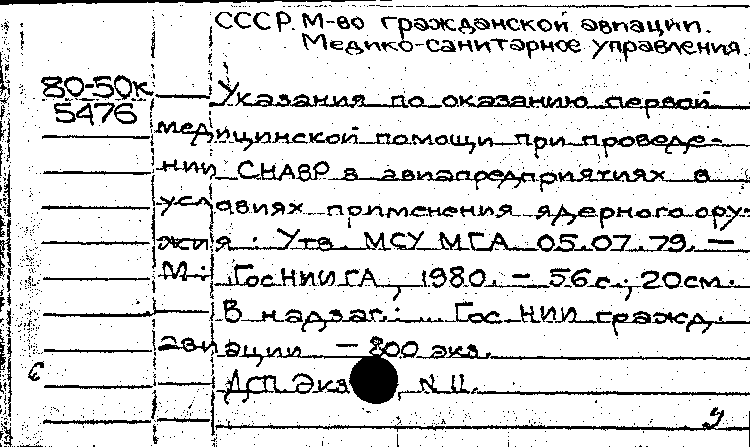 СССР. М-во гражданской авиации.
Медико-санитарное управления.
80-50к
5476
Указания по оказанию первой
медицинской помощи при проведе-
нии СНАВР в авиапредприятиях в
условиях применения ядерного ору-
жия : Утв. МСУ МГА 05.07.79. —
М.: ГосНИИГА, 1980. — 56с.; 20см.
В надзаг.: ... Гос. НИИ гражд.
авиации — 800 экз.
ДСП. Экз. N 11.